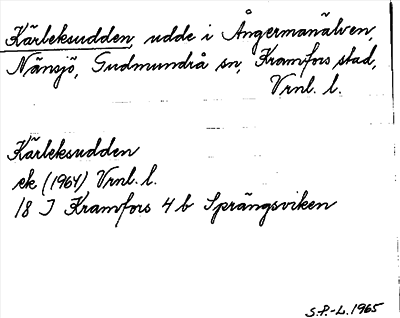 Kärleksudden, udde i Ångermanälven,
Nänsjö, Gudmundrå sn, Kramfors stad,
Vrnl. l.
Kärleksudden
ek (1964) Vrnl. l.
18 I Kramfors 4 b Sprängsviken
S.P.-L. 1965